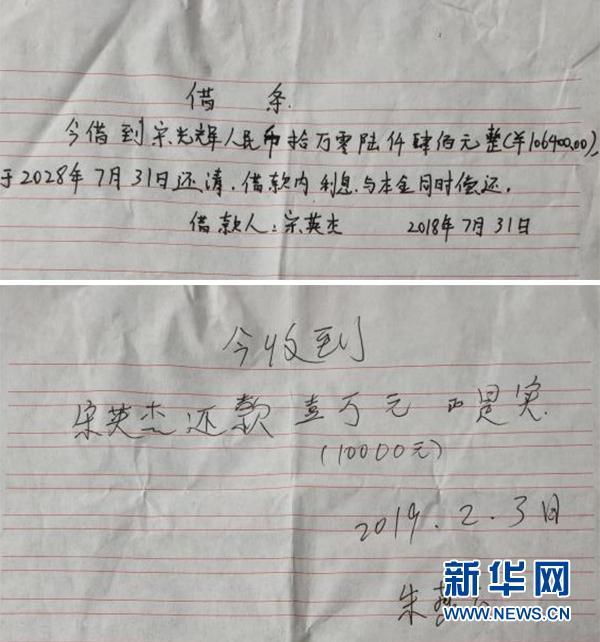 借 条
今借到宋光辉人民币拾万零陆仟肆佰元整(￥106400.00),
于2028年7月31日还清.借款内利息与本金同时偿还.
借款人:宋英杰 2018年7月31日
今收到
宋英杰还款 壹万元 正是实.
(10000元)
2019.2.3日
朱
新华网
WWW.NEWS.CN